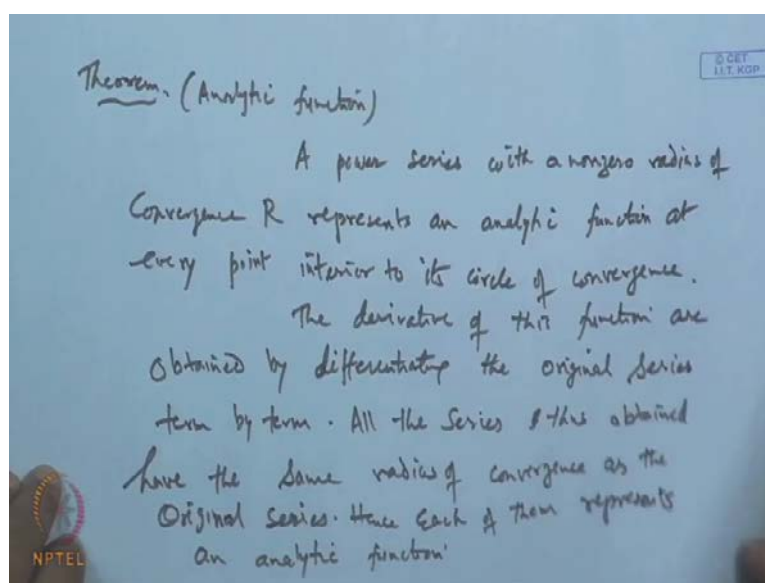 © CET
I.I.T. KGP
Theorem. (Analytic function)
A power series with a nonzero radius of
Convergence R represents an analytic function at
every point interior to its circle of convergence.
The derivative of this function are
obtained by differentiating the original series
term by term. All the series thus obtained
have the same radius of convergence as the
Original series. Hence each of them represents
an analytic function.
NPTEL